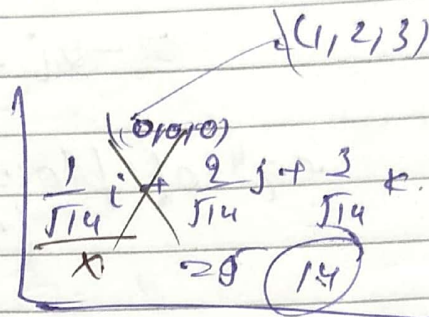 (1,2,3)
(0,0,0)
1/√14 i + 2/√14 j + 3/√14 k.
x
14